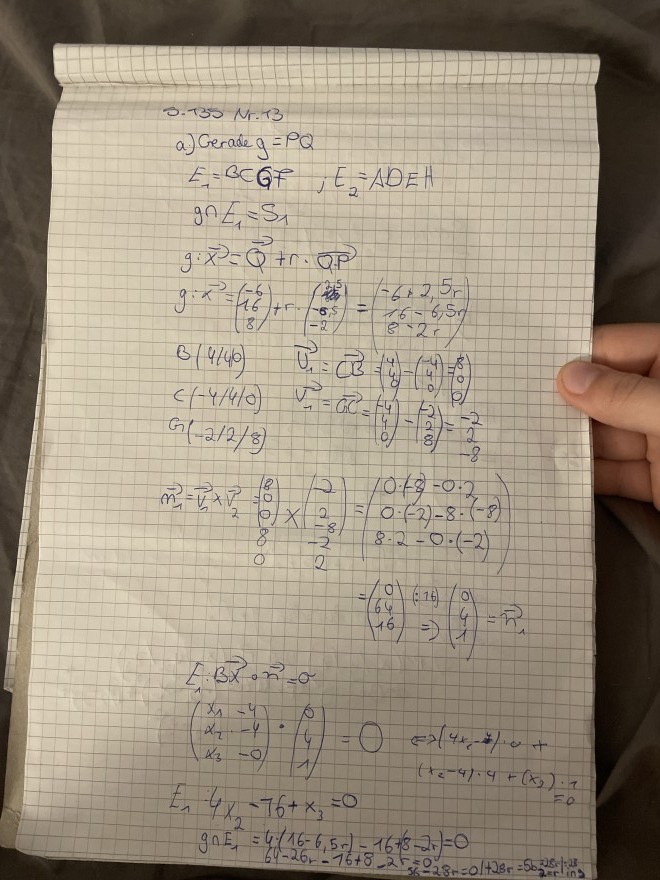 S.135 Nr.13
a.) Gerade g = PQ
E₁ = BCGF ; E₂ = ADEH
g∩E₁ = S₁
g: x⃗ = Q⃗ + r · QP⃗
g: x⃗ = (-6 16 8) + r · (2,5 -6,5 -2) = (-6+2,5r 16-6,5r 8-2r)
B(4/4/0) V⃗₁ = CB⃗ = (4 4 0) - (-4 4 0) = (8 0 0)
C(-4/4/0) V⃗₁ = GC⃗ = (-4 4 0) - (-2 2 8) = -2 2 -8
G(-2/2/8)
n⃗₁ = v⃗₁ × v⃗₂ = (8 0 0) × (-2 2 -8) = (0·(-8)-0·2 0·(-2)-8·(-8) 8·2-0·(-2))
8 -2
0 2
= (0 64 16) (:16) => (0 4 1) = n⃗₁
E₁: BX⃗ ∘ n⃗ = 0
(x₁-4 x₂-4 x₃-0) · (0 4 1) = 0 <=> (x₁-4)·0 +
(x₂-4)·4 + (x₃)·1
=0
E₁ 4x₂ -16 + x₃ = 0
g∩E₁ = 4·(16-6,5r) - 16+(8-2r) = 0
64-26r-16+8-2r=0
56-28r=0 |+28r = 56=28r |:28
2=r in g